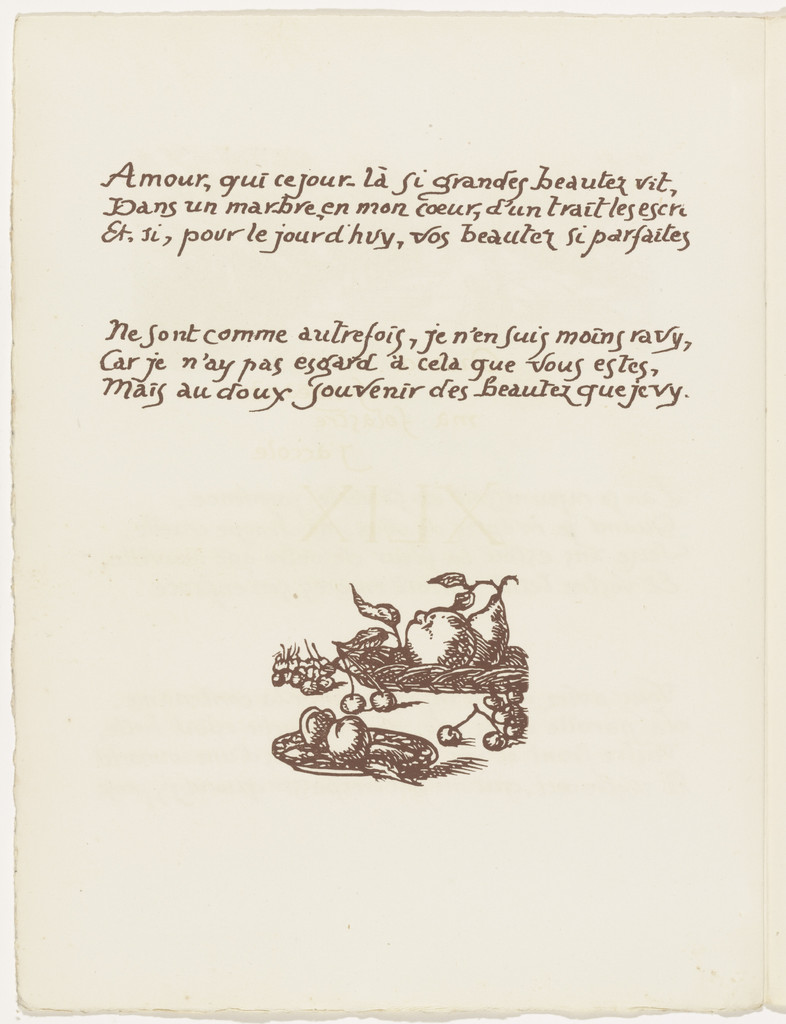 Amour, qui ce jour-là si grandes beautez vit,
Dans un marbre, en mon cœur, d'un trait les escri
Et, si, pour le jour d'huy, vos beautez si parfaites
Ne sont comme autrefois, je n'en suis moins ravy,
Car je n'ay pas esgard à cela que vous estes,
Mais au doux souvenir des beautez que je vy.
XLIX